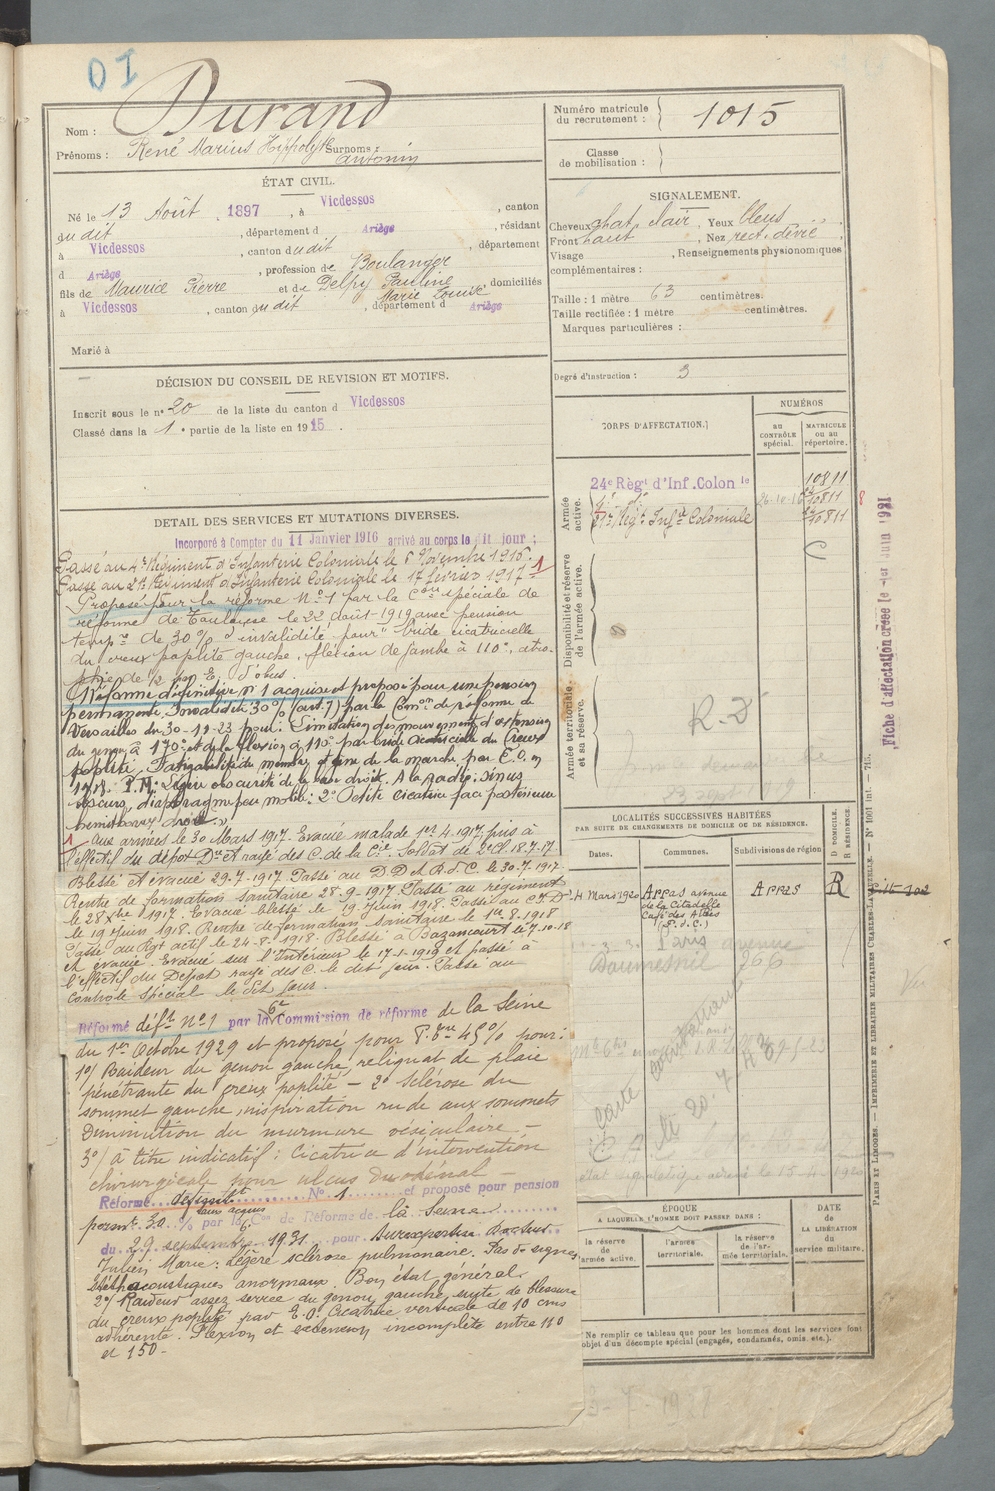 OI
Nom : Durand
Prénoms : René Marius Hippolyte Surnoms : Antonin
Numéro matricule du recrutement : 1015
Classe de mobilisation :
ÉTAT CIVIL.
Né le 13 Août 1897, à Vicdessos, canton
du dit, département d Ariège, résidant
à Vicdessos, canton du dit, département
d Ariège, profession de Boulanger
fils de Maurice Pierre et de Delpy Pauline Marie Louise, domiciliés
à Vicdessos, canton du dit, département d Ariège
Marié à
SIGNALEMENT.
Cheveux chat. clair, Yeux bleus
Front haut, Nez rect. dévié,
Visage , Renseignements physionomiques
complémentaires :
Taille : 1 mètre 63 centimètres.
Taille rectifiée : 1 mètre centimètres.
Marques particulières :
Degré d'instruction : 3
DÉCISION DU CONSEIL DE REVISION ET MOTIFS.
Inscrit sous le nº 20 de la liste du canton d Vicdessos
Classé dans la 1e partie de la liste en 1915.
CORPS D'AFFECTATION.
NUMÉROS
AU CONTRÔLE spécial.
MATRICULE ou au répertoire.
Armée active.
24e Régt d'Inf. Colonle
10811
4e dº
26-10-16
10811
Régt Infie Coloniale
10811
Disponibilité et réserve de l'armée active.
Armée territoriale et sa réserve.
R. D
DETAIL DES SERVICES ET MUTATIONS DIVERSES.
Incorporé à Compter du 11 Janvier 1916 arrivé au corps le dit jour ;
Passé au 4e Régiment d'Infanterie Coloniale le 6 Novembre 1916.
Passé au 21e Régiment d'Infanterie Coloniale le 17 février 1917. 1
Proposé pour la réforme Nº 1 par la Con spéciale de
réforme de Toulouse le 22 août 1919 avec pension
tempre de 30% d'invalidité pour "bride cicatricielle
du creux poplité gauche, flexion de jambe à 110°, atro-
phie de 1/2 par E. d'obus.
Réforme définitive nº 1 acquise et proposé pour une pension
permanente Invalidité 30% (art. 7) par la Comon de réforme de
Versailles du 30-11-23 pour : Limitation des mouvements d'extension
du genou à 170° et de la flexion à 110° par bride cicatricielle du Creux
poplité. Fatigabilité du membre et gêne de la marche par E. O. en
1917. P.M: Légère obscurité de la base droite. A la radio: sinus
obscurs, diaphragme peu mobile: 2° Petite cicatrice face postérieure
1 Aux armées le 30 Mars 1917. Evacué malade 1er 4.1917, puis à
l'effectif du dépôt De et rayé des C. de la Cie. Soldat de 2e Cl. 18.7.17
Blessé et évacué 29.7.1917. Passé au D.D et R.d.C. le 30.7.1917
Rentré de formation sanitaire 28.9.1917. Passé au régiment
le 28 Xbre 1917. Evacué blessé le 19 Juin 1918. Passé au
le 19 Juin 1918. Rentré de formation sanitaire le 1er 8.1918
Passé au Rgt actif le 24-8-1918. Blessé à Bazancourt le 7.10.18
et évacué. Evacué sur l'Intérieur le 17.1.1919 et passé à
l'effectif du Dépôt rayé des C. le dit jour. Passé au
contrôle spécial le dit jour.
Réformé défit Nº 1 par la 6e Commission de réforme de la Seine
du 1er Octobre 1929 et proposé pour P. 45% pour:
1º/ Raideur du genou gauche, reliquat de plaie
pénétrante du creux poplité - 2º Sclérose du
sommet gauche, inspiration rude aux sommets
Diminution du murmure vésiculaire. -
3º/ à titre indicatif : Cicatrice d'intervention
chirurgicale pour ulcus duodénal -
Réformé définitt Nº 1 et proposé pour pension
permte 30 % par la 6e Con de Réforme de la Seine
du 29 septembre 1931 pour Surexpertise Docteur
Julien Marie: Légère sclérose pulmonaire. Pas de signes
stéthacoustiques anormaux. Bon état général.
2º/ Raideur assez serrée du genou gauche, suite de blessure
du creux poplité par E.O. Cicatrice verticale de 10 cms
adhérente. Flexion et extension incomplète entre 110
et 150 -
LOCALITÉS SUCCESSIVES HABITÉES
PAR SUITE DE CHANGEMENTS DE DOMICILE OU DE RÉSIDENCE.
Dates.
Communes.
Subdivisions de région
D DOMICILE.
R RÉSIDENCE
4 Mars 1920
Arras avenue
de la Citadelle
Café des Alliés
(P. d. C.)
Arras
R
Paris avenue
Daumesnil 266
ÉPOQUE
A LAQUELLE L'HOMME DOIT PASSER DANS :
la réserve de l'armée active.
l'armée territoriale.
la réserve de l'armée territoriale.
DATE de LA LIBÉRATION du service militaire.
Ne remplir ce tableau que pour les hommes dont les services font
objet d'un décompte spécial (engagés, condamnés, omis. etc.).
Fiche d'affectation créée le 1er Juin 1921
PARIS ET LIMOGES. — IMPRIMERIE ET LIBRAIRIE MILITAIRES CHARLES-LAVAUZELLE. — Nº 1001 int. — 7/15.